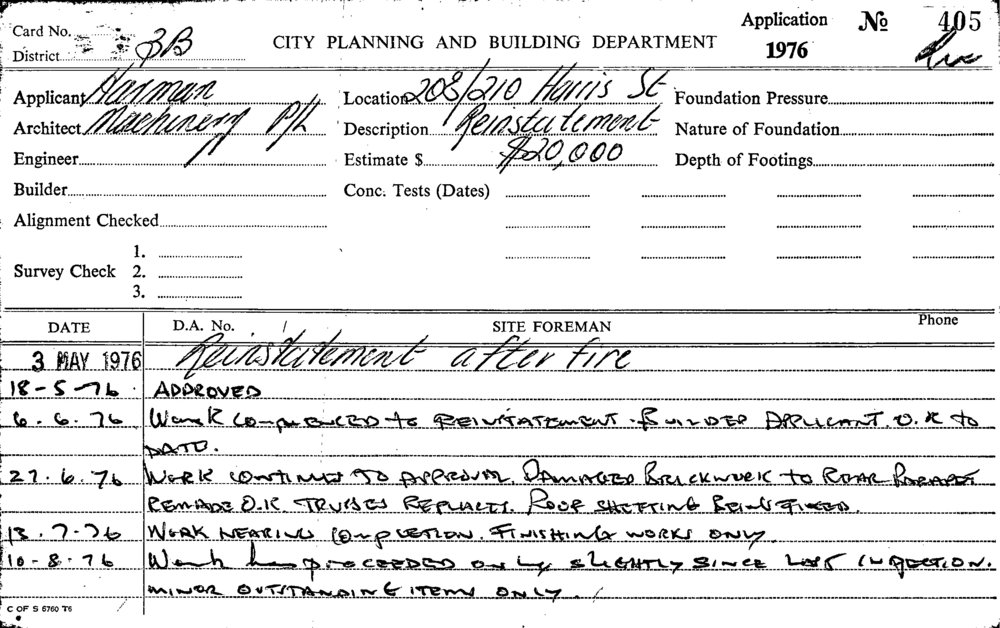 Application No 405
Card No.
1976
District 3B
CITY PLANNING AND BUILDING DEPARTMENT
Applicant Harman Location 208/210 Harris St Foundation Pressure
Architect Machinery P/L Description Reinstatement Nature of Foundation
Engineer Estimate $ $20,000 Depth of Footings
Builder Conc. Tests (Dates)
Alignment Checked
1.
Survey Check 2.
3.
DATE D.A. No. SITE FOREMAN Phone
3 MAY 1976 Reinstatement after fire
18-5-76 APPROVED
6.6.76 Work commenced to REINSTATEMENT. BUILDER APLICANT. O.K to
DATE.
27.6.76 WORK CONTINUES TO APPROVAL. DAMAGED BRICKWORK TO REAR PARAPET
REMADE O.K. TRUSSES REPLACED. ROOF SHEETING BEING FIXED.
13.7-76 WORK NEARING COMPLETION. FINISHING WORKS ONLY.
10-8-76 Work has PROCEEDED only SLIGHTLY SINCE LAST INSPECTION.
MINOR OUTSTANDING ITEMS ONLY.
C OF S 5760 T6